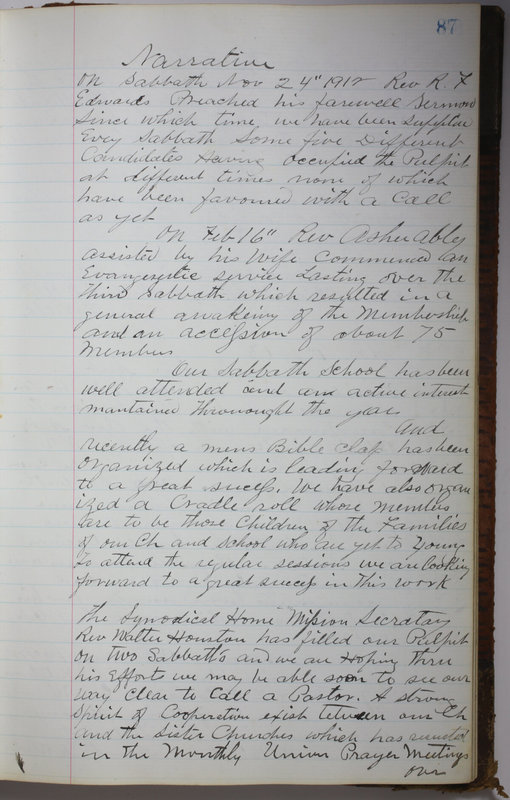 87
Narrative
On Sabbath Nov 24" 1912 Rev R. F
Edwards Preached his farewell Sermon
Since which time, we have been
Evey Sabbath Some five Different
Candidates Having occupied the Pulpit
at different times none of which
have been favoured with a Call
as yet
On Feb 16" Rev Asher Abley
assisted by his Wife Commenced an
Evangeletic service Lasting over the
third Sabbath which resulted in a
general awakeing of the Membership
and an accession of about 75
Members
Our Sabbath School has been
well attended and an active interest
mantained throwought the year
And
recently a mens Bible Class has been
Organized which is leading forward
to a great success. We have also organ
ized a Cradle roll whose members
are to be those Children of the Families
of our Ch and School who are yet to Young
to attend the regular sessions we are looking
forward to a great success in this work
The Synodical Home Mission Secretary
Rev Walter Houston has filled our Pulpit
on two Sabbaths and we are Hoping thru
his Efforts we may be able soon to see our
way clear to Call a Pastor. A strong
Spirit of Cooperation exist between our Ch
and the Sister Churches which has resulted
in the Monthly Union Prayer Meetings
over